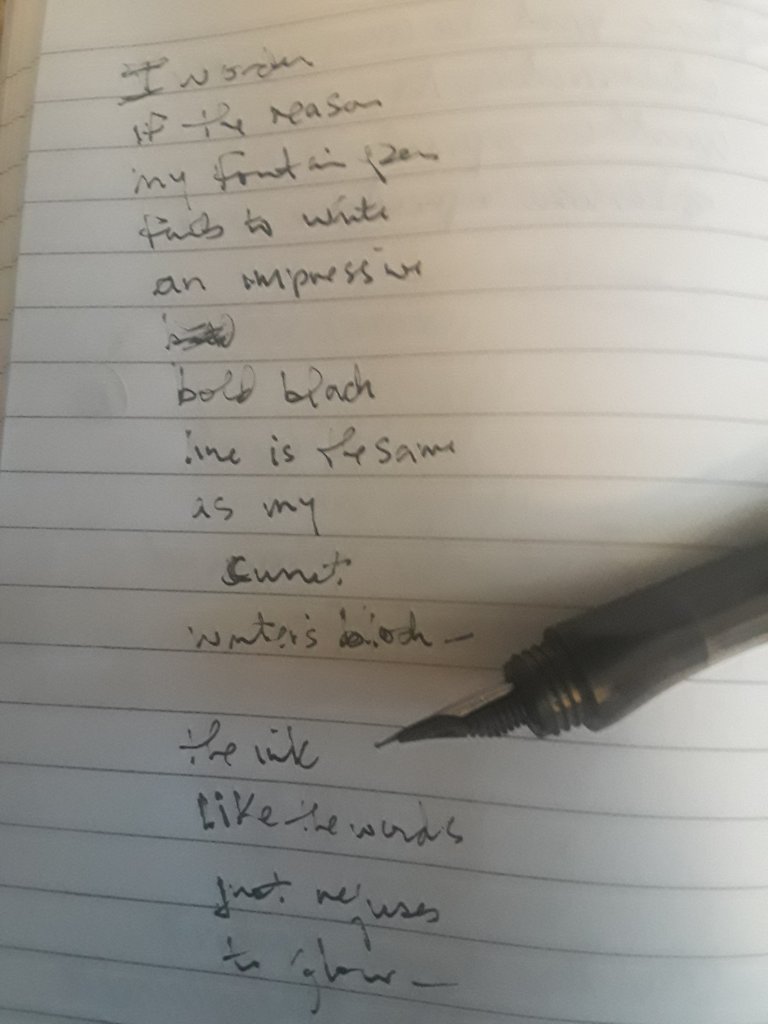 I wonder
if the reason
my fountain pen
fails to write
an impressive
bold black
line is the same
as my
current
writer's block —
the ink
like the words
just refuses
to flow —